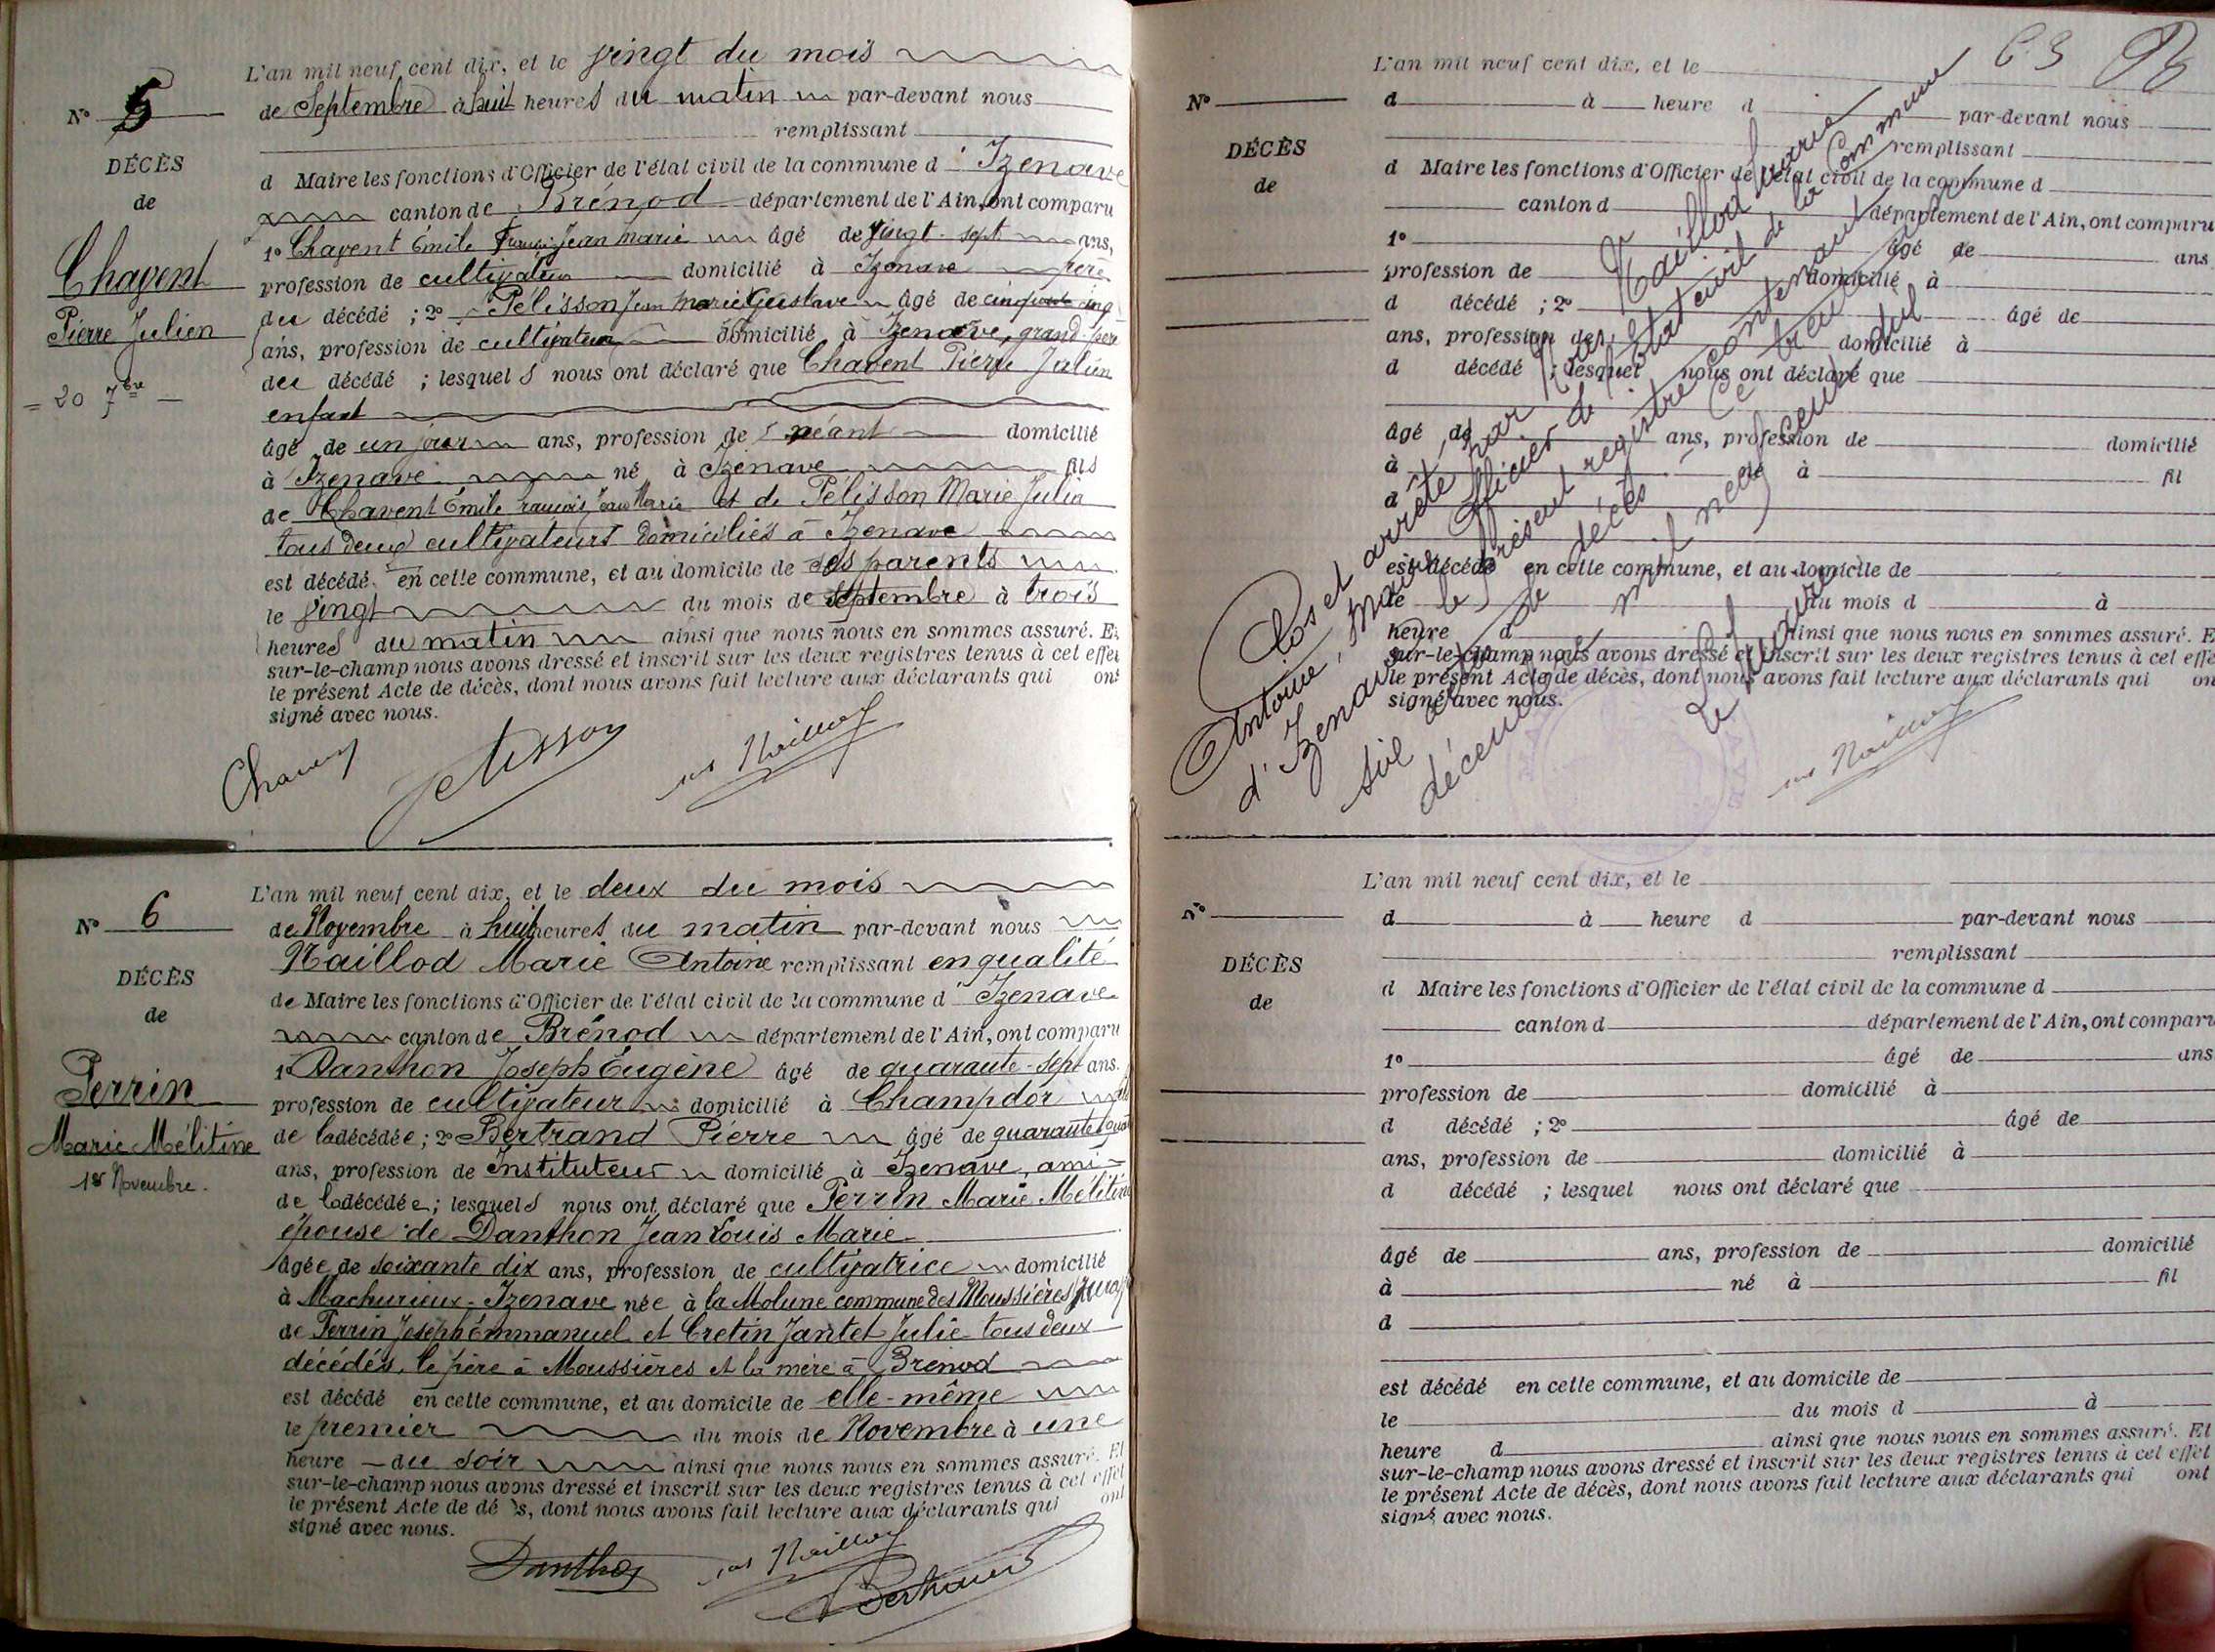 L'an mil neuf cent dix, et le vingt du mois
N° 5
de Septembre à huit heures du matin par-devant nous
remplissant
DÉCÈS
de
d Maire les fonctions d'Officier de l'état civil de la commune d'Izenave
canton de Brénod département de l'Ain, ont comparu
Chavent
Pierre Julien
= 20 7bre —
1° Chavent Émile François Jean Marie âgé de vingt-sept ans,
profession de cultivateur domicilié à Izenave père
du décédé ; 2° Pélisson Jean Marie Gustave âgé de cinquante cinq
ans, profession de cultivateur domicilié à Izenave, grand-père
du décédé ; lesquels nous ont déclaré que Chavent Pierre Julien
enfant
âgé de un jour ans, profession de néant domicilié
à Izenave né à Izenave fils
de Chavent Émile François Jean Marie et de Pélisson Marie Julia
tous deux cultivateurs domiciliés à Izenave
est décédé en cette commune, et au domicile de ses parents
le vingt du mois de septembre à trois
heures du matin ainsi que nous nous en sommes assuré. Et
sur-le-champ nous avons dressé et inscrit sur les deux registres tenus à cet effet
le présent Acte de décès, dont nous avons fait lecture aux déclarants qui ont
signé avec nous.
Chavent Pelisson Maillod
L'an mil neuf cent dix, et le deux du mois
N° 6
de Novembre à huit heures du matin par-devant nous
Maillod Marie Antoine remplissant en qualité
DÉCÈS
de
de Maire les fonctions d'Officier de l'état civil de la commune d'Izenave
canton de Brénod département de l'Ain, ont comparu
Perrin
Marie Mélitine
1er Novembre.
1° Danthon Joseph Eugène âgé de quarante-sept ans.
profession de cultivateur domicilié à Champdor fils
de la décédée ; 2° Bertrand Pierre âgé de quarante quatre
ans, profession de Instituteur domicilié à Izenave, ami
de la décédée ; lesquels nous ont déclaré que Perrin Marie Mélitine
épouse de Danthon Jean Louis Marie
âgée de soixante dix ans, profession de cultivatrice domicilié
à Machurieux-Izenave née à la Molune commune des Moussières Jura
de Perrin Joseph Emmanuel et Cretin Jantet Julie tous deux
décédés, le père à Moussières et la mère à Brénod
est décédé en cette commune, et au domicile de elle-même
le premier du mois de Novembre à une
heure du soir ainsi que nous nous en sommes assuré. Et
sur-le-champ nous avons dressé et inscrit sur les deux registres tenus à cet effet
le présent Acte de décès, dont nous avons fait lecture aux déclarants qui ont
signé avec nous.
Danthon Maillod
Bertrand
63
L'an mil neuf cent dix, et le
N°
d à heure d par-devant nous
remplissant
DÉCÈS
de
d Maire les fonctions d'Officier de l'état civil de la commune d
canton d département de l'Ain, ont comparu
1° âgé de ans
profession de domicilié à
d décédé ; 2° âgé de
ans, profession de domicilié à
d décédé ; lesquel nous ont déclaré que
âgé de ans, profession de domicilié
à né à fil
d
est décédé en cette commune, et au domicile de
le du mois d à
heure d ainsi que nous nous en sommes assuré. E
sur-le-champ nous avons dressé et inscrit sur les deux registres tenus à cet effe
le présent Acte de décès, dont nous avons fait lecture aux déclarants qui on
signé avec nous.
Clos et arrêté par Nous, Maillod Marie
Antoine, Maire et Officier de l'état civil de la Commune
d'Izenave, le présent registre contenant
six actes de décès. Ce trente un
décembre mil neuf cent dix
Le Maire
Maillod
L'an mil neuf cent dix, et le
N°
d à heure d par-devant nous
remplissant
DÉCÈS
de
d Maire les fonctions d'Officier de l'état civil de la commune d
canton d département de l'Ain, ont comparu
1° âgé de ans
profession de domicilié à
d décédé ; 2° âgé de
ans, profession de domicilié à
d décédé ; lesquel nous ont déclaré que
âgé de ans, profession de domicilié
à né à fil
d
est décédé en cette commune, et au domicile de
le du mois d à
heure d ainsi que nous nous en sommes assuré. Et
sur-le-champ nous avons dressé et inscrit sur les deux registres tenus à cet effet
le présent Acte de décès, dont nous avons fait lecture aux déclarants qui ont
signé avec nous.